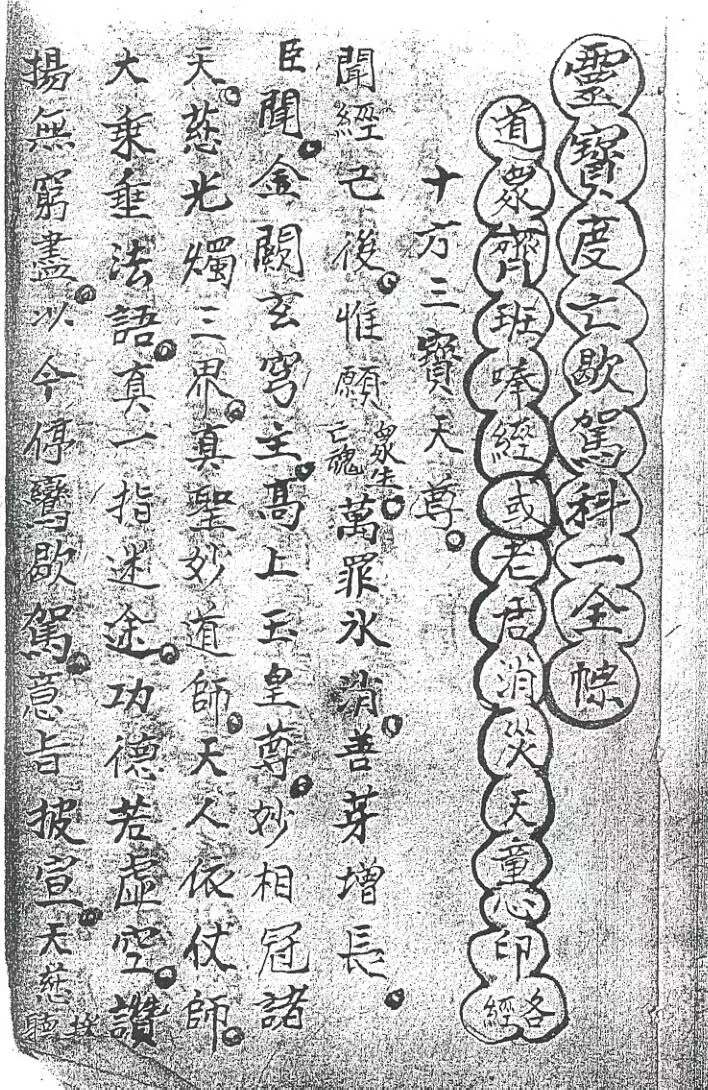 靈寶度亡歇駕科一全幖
道眾齊班唪經或老君消災天童心印各經
十方三寶天尊。
聞經已後。惟願眾生亡魂。萬罪氷消。善芽增長。
臣聞。金闕玄穹主。高上玉皇尊。妙相冠諸
天。慈光燭三界。真聖妙道師。天人依仗師。
大乗垂法語。真一指迷途。功德若虛空。讚
揚無窮盡。以今停鸞歇駕。意旨披宣。天慈
聽